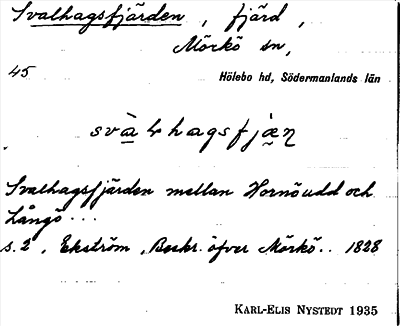 Svalhagsfjärden, fjärd,
Mörkö sn,
45 Hölebo hd, Södermanlands län
svàlhagsfjæ̀η
Svalhagsfjärden mellan Hornöudd och
Långö...
s. 2, Ekström, Beskr. öfver Mörkö.. 1828
KARL-ELIS NYSTEDT 1935